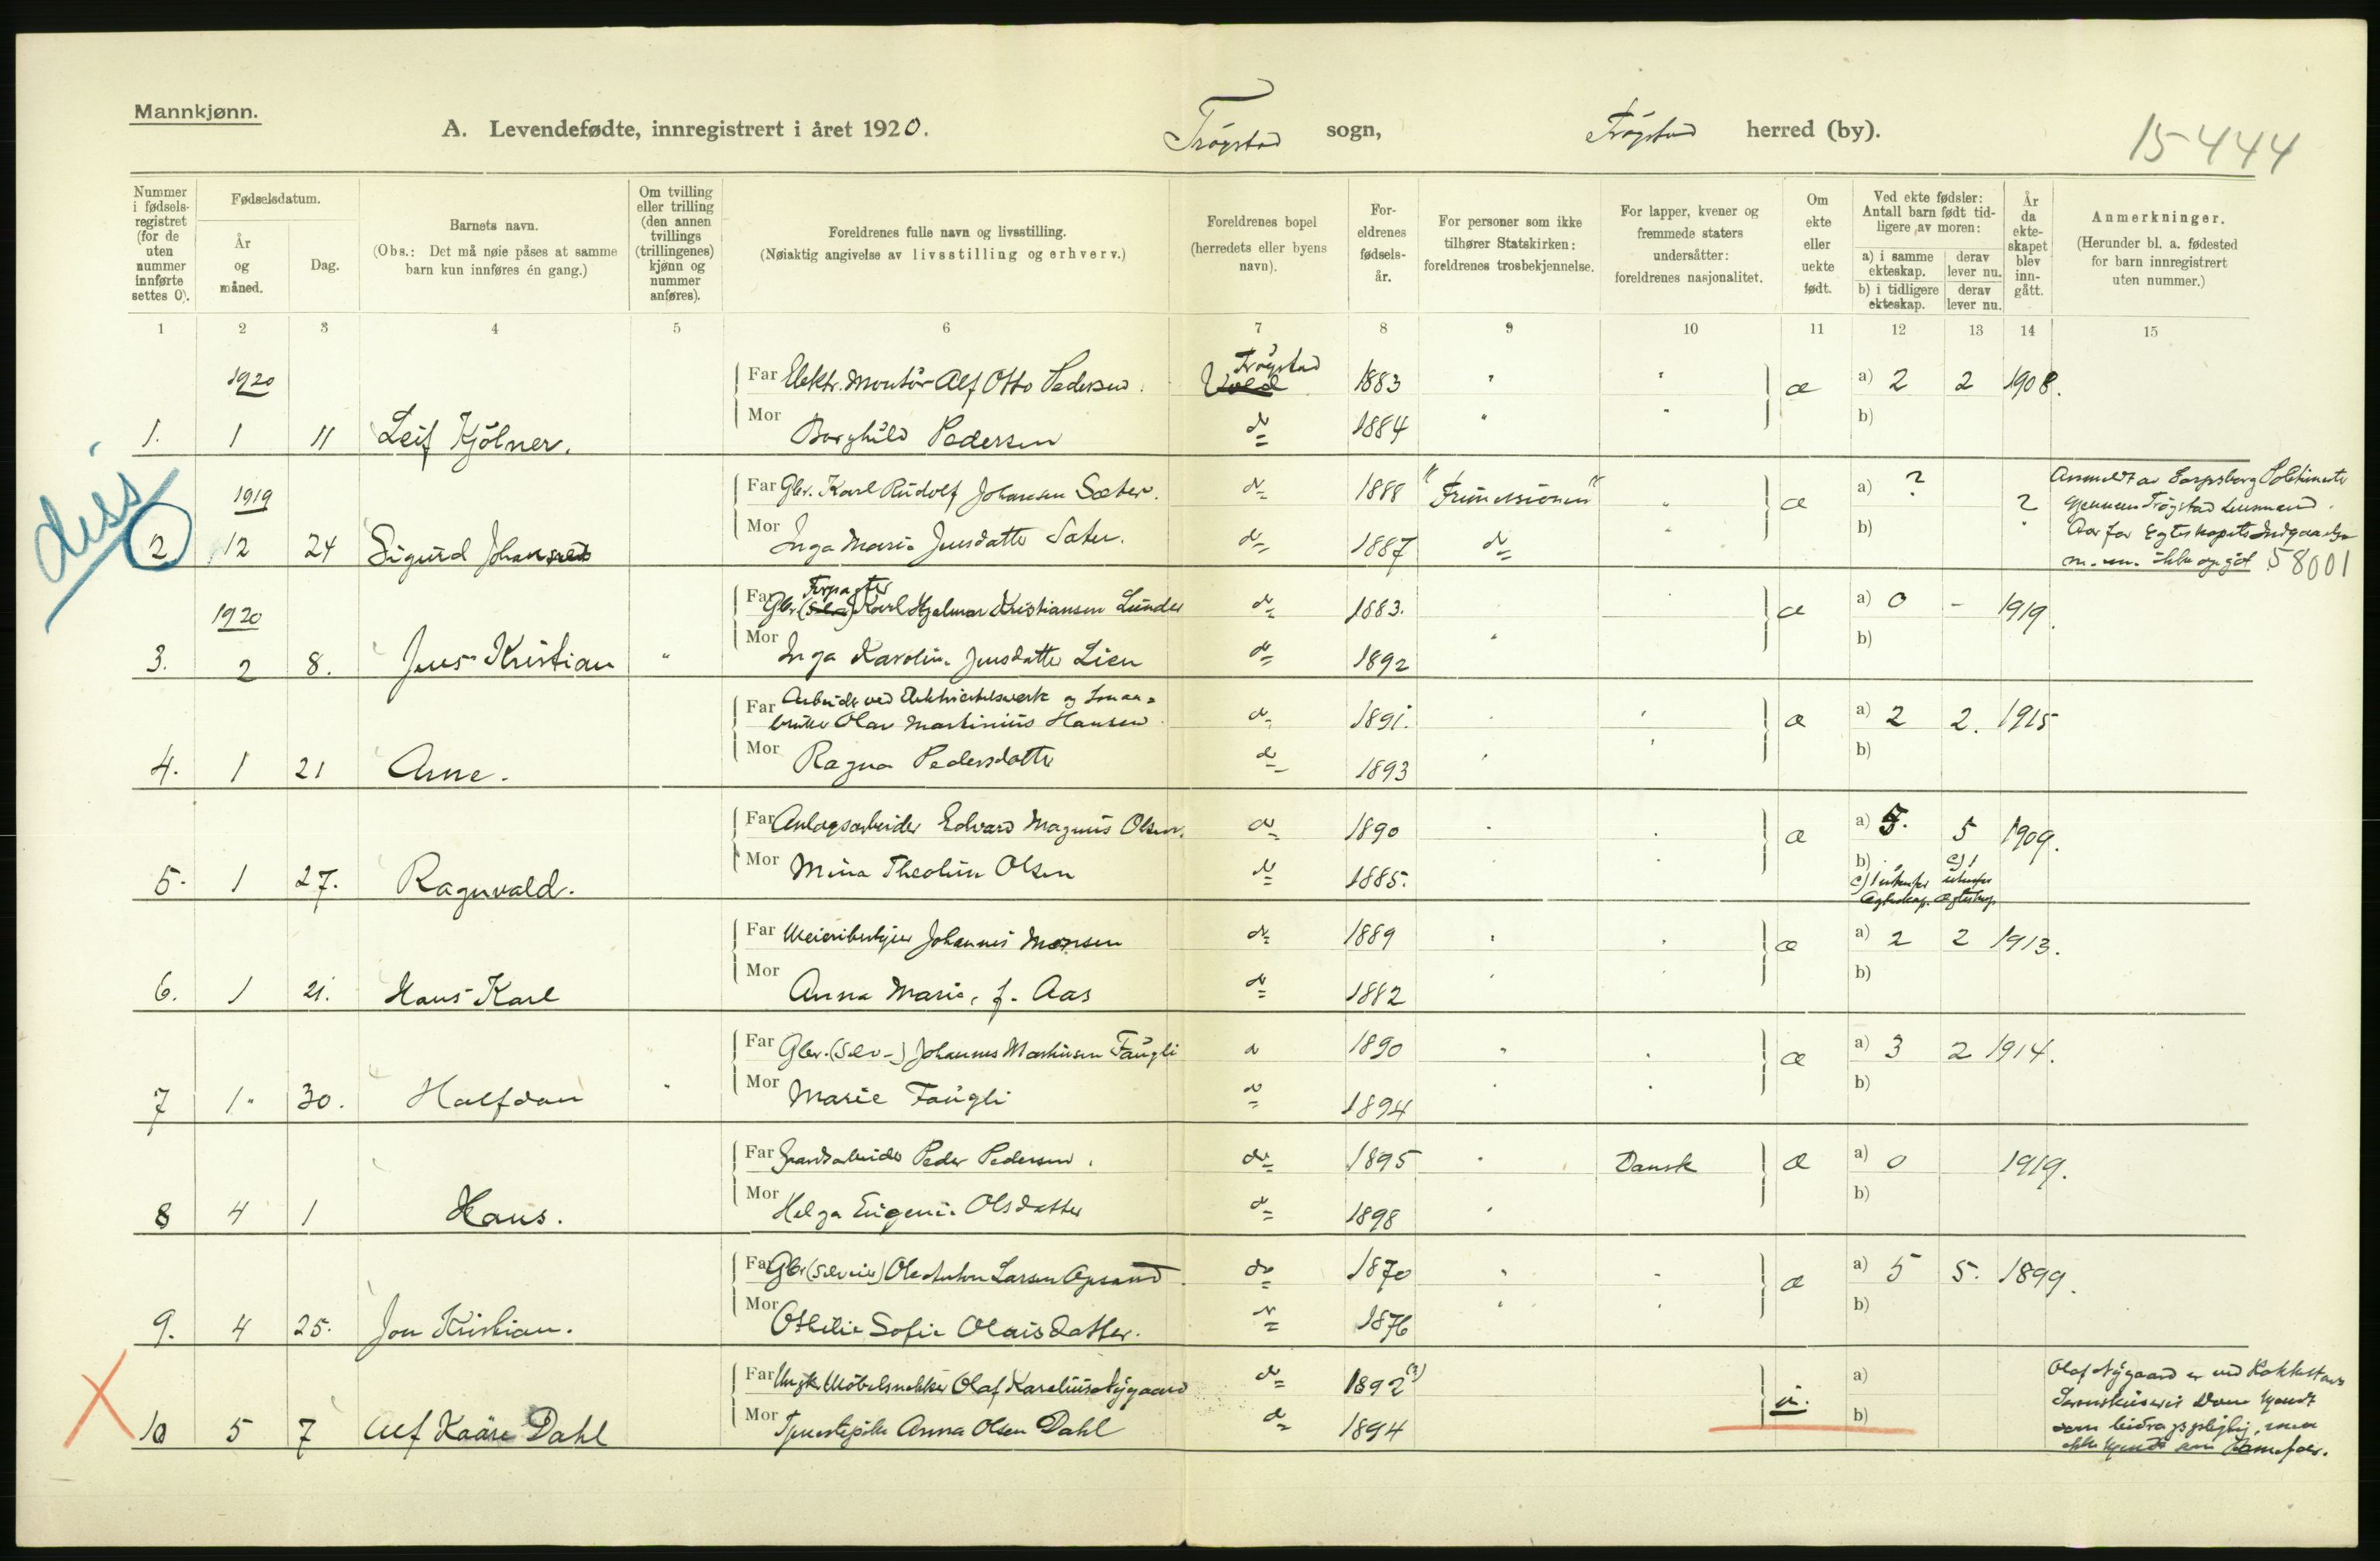 Mannkjønn.
A. Levendefødte, innregistrert i året 1920.
Trøgstad sogn,
Trøgstad herred (by).
15444
Nummer i fødsels-registret (for de uten nummer innførte settes 0).
Fødselsdatum.
År og måned.
Dag.
Barnets navn.
(Obs.: Det må nøie påses at samme barn kun innføres én gang.)
Om tvilling eller trilling (den annen tvillings (trillingenes) kjønn og nummer anføres).
Foreldrenes fulle navn og livsstilling.
(Nøiaktig angivelse av livsstilling og erhverv.)
Foreldrenes bopel (herredets eller byens navn).
For-eldrenes fødsels-år.
For personer som ikke tilhører Statskirken: foreldrenes trosbekjennelse.
For lapper, kvener og fremmede staters undersåtter: foreldrenes nasjonalitet.
Om ekte eller uekte født.
Ved ekte fødsler: Antall barn født tid-ligere av moren:
a) i samme ekteskap.
derav lever nu.
b) i tidligere ekteskap.
derav lever nu.
År da ekte-skapet blev inn-gått.
Anmerkninger.
(Herunder bl. a. fødested for barn innregistrert uten nummer.)
1 2 3 4 5 6 7 8 9 10 11 12 13 14 15
1920 Far Elektr. Montør Alf Otto Pedersen. Trøgstad 1883 " " æ a) 2 2 1908.
1. 1 11 Leif Kjølner. Mor Borghild Pedersen do 1884 " " b)
diss
1919 Far Gbr. Karl Rudolf Johansen Sæter. do 1888 "Frimissionen" " æ a) ? ?
2 12 24 Sigurd Johannes Mor Inga Maria Jensdatter Sæter. do 1887 do " b)
Anmeldt av Sarpsborg Politimester
gjennem Trøgstad Lensmand.
Aar for Egteskapets Indgaaelse
m. m. ikke opgit 58001
1920 Far Gbr. (Forpagter) Karl Hjalmar Kristiansen Lunder do 1883. æ a) 0 - 1919.
3. 2 8. Jens Kristian " Mor Inga Karoline Jensdatter Lien do 1892 " b)
Far Arbeider ved Elektricitetsverk og Smaa-
bruker Olav Martinius Hansen do 1891. æ a) 2 2. 1915
4. 1 21 Arne. Mor Ragna Pedersdatter do 1893 b)
Far Anlægsarbeider Edvard Magnus Olsen. do 1890 æ a) 5. 5 1909.
5. 1 27. Ragnvald. Mor Mina Theoline Olsen do 1885. b)
c) 1 utenfor Ægteskap. c) 1 utenfor Ægteskap
Far Meieribestyrer Johannes Monsen do 1889 æ a) 2 2 1913.
6. 1 21. Hans Karl Mor Anna Marie, f. Aas do 1882 b)
Far Gbr. (Selv-) Johannes Martinsen Faugli do 1890 æ a) 3 2 1914.
7 1 30. Halfdan Mor Marie Faugli do 1894 b)
Far Peder Pedersen. do 1895 Dansk æ a) 0 1919.
8 4 1 Hans. Mor Helga Eugenie Olsdatter do 1898 b)
Far Gbr (Selveier) Ole Anton Larsen do 1870 æ a) 5 5. 1899.
9. 4 25. Jon Kristian. Mor Othilie Sofie Olaisdatter. do 1876 b)
Far Ungk. Møbelsnekker Olaf Karelius Nygaard do 1892 (?) a)
X 10 5 7 Alf Kaare Dahl Mor Tjenestepike Anna Olsen Dahl do 1894 u. b)
Olaf Nygaard er ved Rakkestad
Sorenskriveris Dom kjendt
som bidragspligtig, men
ikke kjendt som Barnefar.